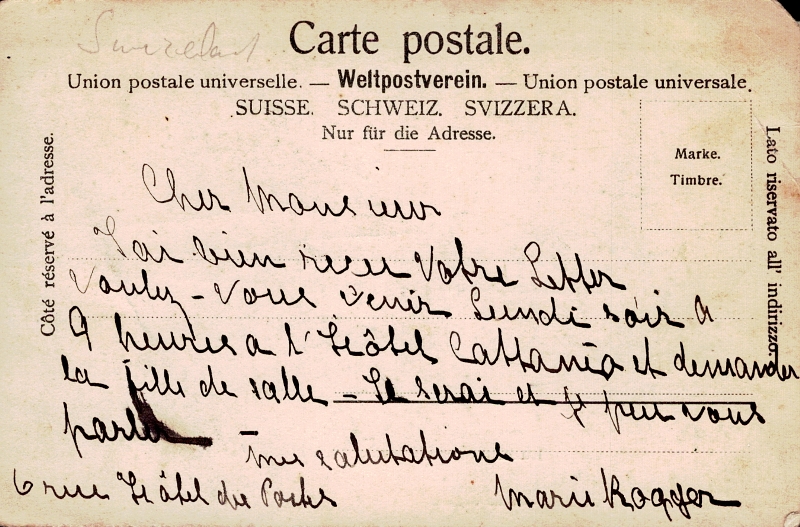 Carte postale.
Union postale universelle. — Weltpostverein. — Union postale universale.
SUISSE. SCHWEIZ. SVIZZERA.
Nur für die Adresse.
Marke.
Timbre.
Côté réservé à l'adresse.
Lato riservato all' indirizzo.
Cher Monsieur
J'ai bien recu Votre Letter
Voulez-vous venir Lundi soir a
9 heures a l'Hôtel Cattania et demander
la fille de salle - Je serai et je peu vous
parler
mes salutations
6 rue Hôtel des Postes
Marie Rogger